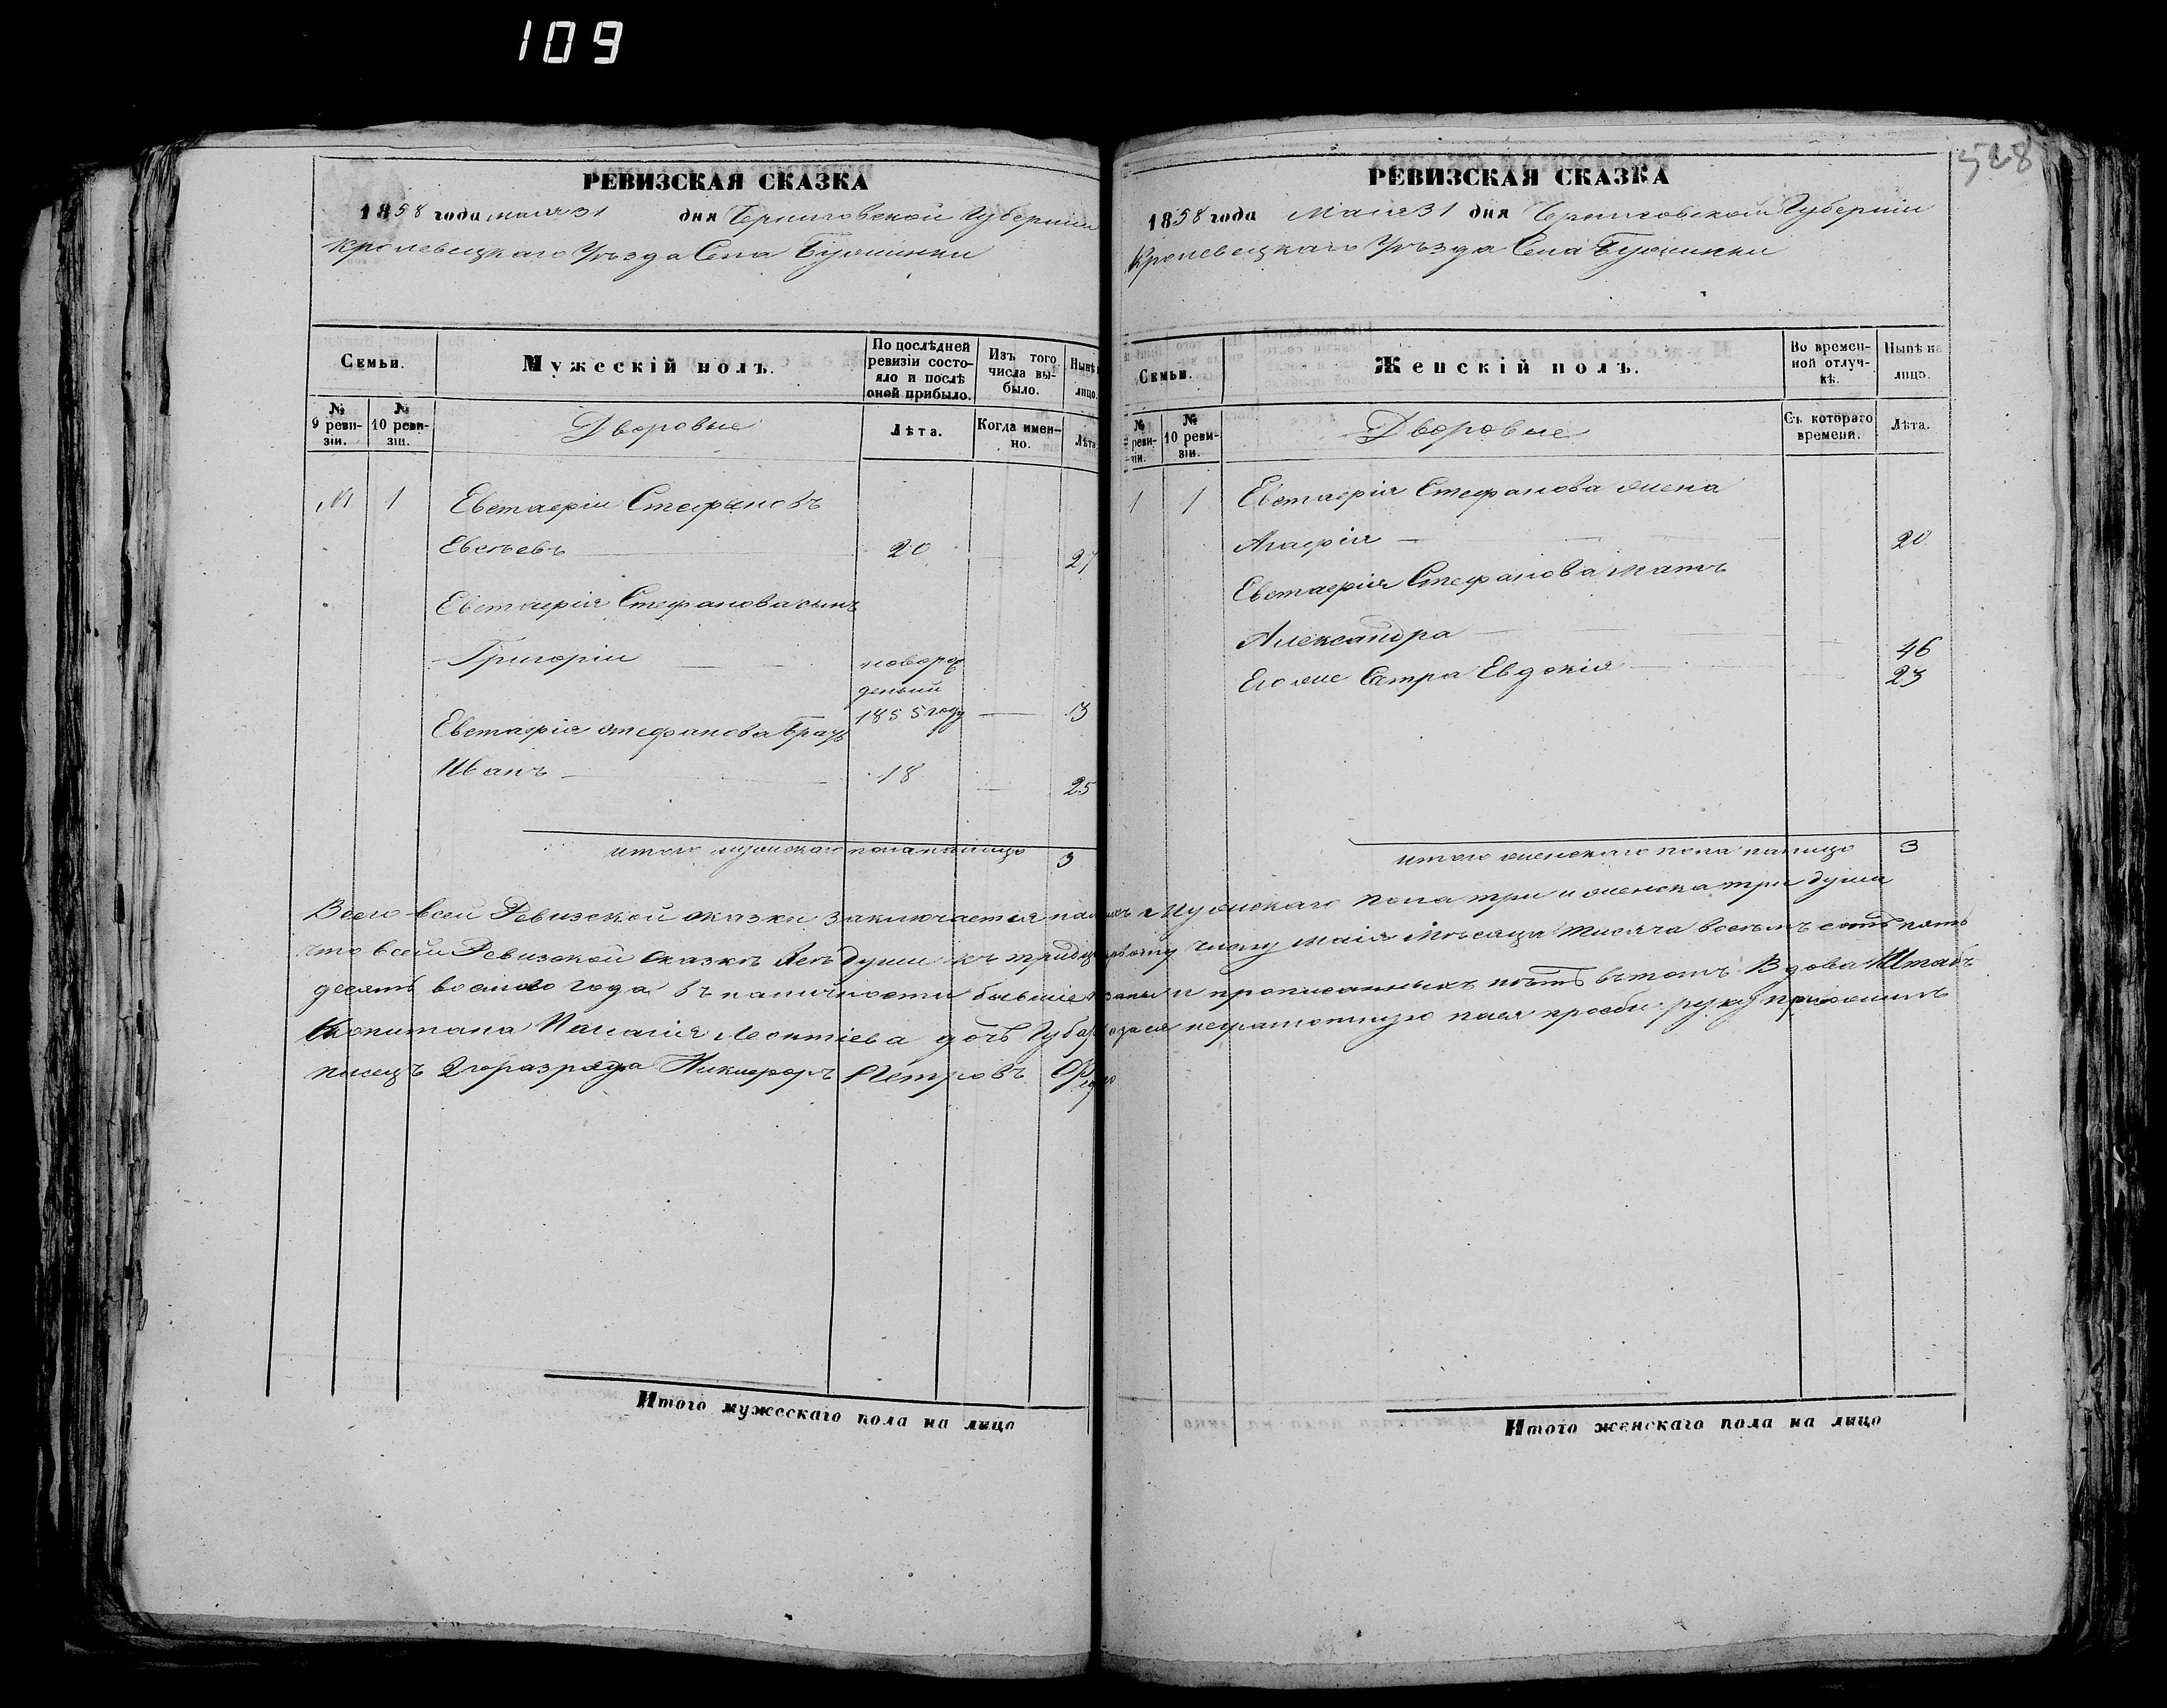 109
528
РЕВИЗСКАЯ СКАЗКА
1858 года мая 31 дня Черниговской Губернiи
Кролевецкаго Уѣзда Села
Семьи.
Мужескiй полъ.
По послѣдней ревизiи состояло и послѣ оной прибыло.
Изъ того числа выбыло.
Нынѣ
лицо.
№ 9 ревизiи.
№ 10 ревизiи.
Дворовые
Лѣта.
Когда именно.
Лѣта
№1 1 Евстафiй Стефановъ
Евсѣевъ 20 27
Евстафiя Стефанова сынъ
Григорiй новорож
денный
1855 году 3
Евстафiя Стефанова братъ
Иванъ 18 25
итого мужскаго пола налицо 3
РЕВИЗСКАЯ СКАЗКА
1858 года Мая 31 дня Черниговской Губернiи
Кролевецкаго Уѣзда Села
Семьи.
Женскiй полъ.
Во временной отлучкѣ.
Нынѣ на лицо.
№ реви-зiи.
№ 10 ревизiи.
Дворовые
Съ котораго времени.
Лѣта.
1 1 Евстафiя Стефанова жена
Агафiя 20
Евстафiя Стефанова мать
Александра 46
Его же Сестра Евдокiя 23
итого женскаго пола налицо 3
Всего всей Ревизской сказки заключается мужскаго пола три и женска три души
что всей Ревизской Сказкѣ души къ тридцать первому числу маiя Мѣсяца тисяча восемъ сотъ пять
десятъ восмого года въ наличности бывшiе и прописанныхъ нѣтъ въ томъ Вдова Штабъ
Капитана Пелагiя Леонтiева дочь неграмотную ея прозби руку приложилъ
писецъ 2го разряда Никифоръ Петровъ
Итого мужескаго пола на лицо
Итого женскаго пола на лицо